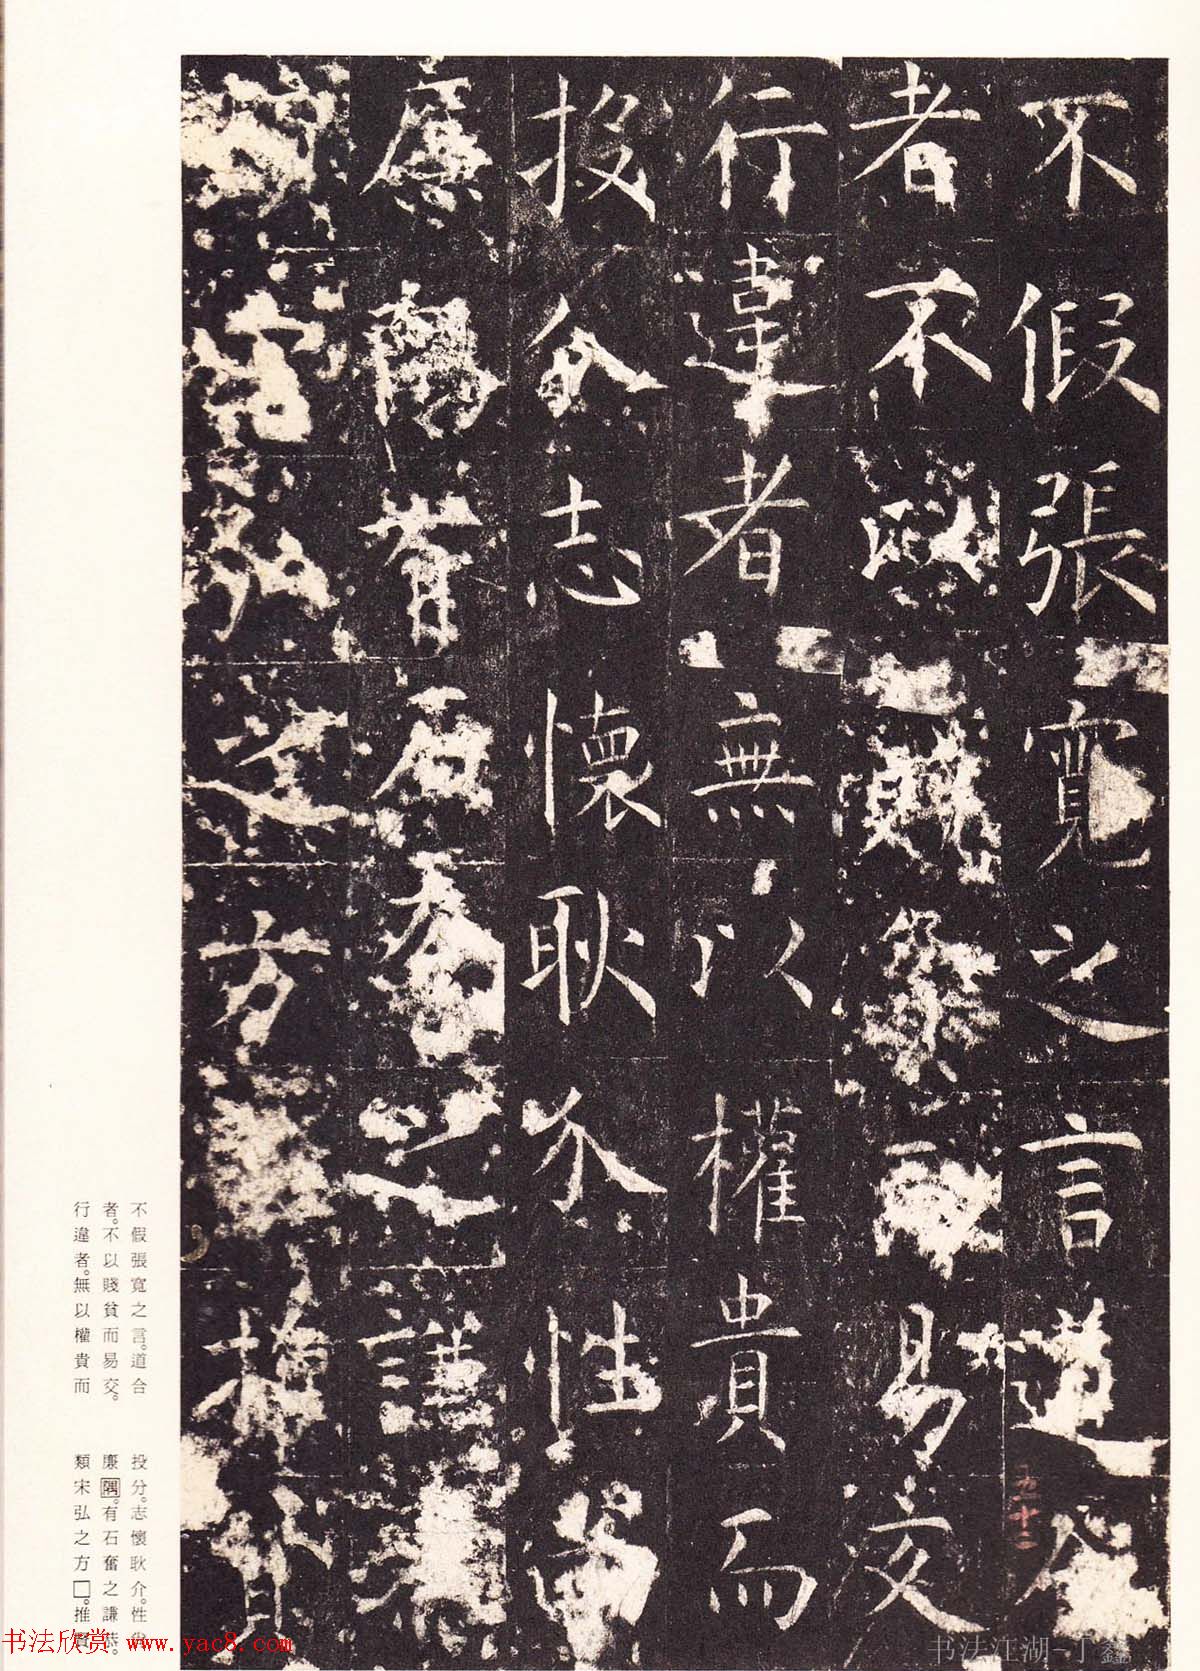 不假張寬之言道合
者不以賤貧而易交
行違者無以權貴而
投分志懷耿介性
廉隅有石奮之謙恭
類宋弘之方推賢
不假張寬之言。道合
者。不以賤貧而易交。
行違者。無以權貴而
投分。志懷耿介。性
廉隅。有石奮之謙恭。
類宋弘之方□。推賢
书法欣赏 www.yac8.com
书法江湖-丁鑫